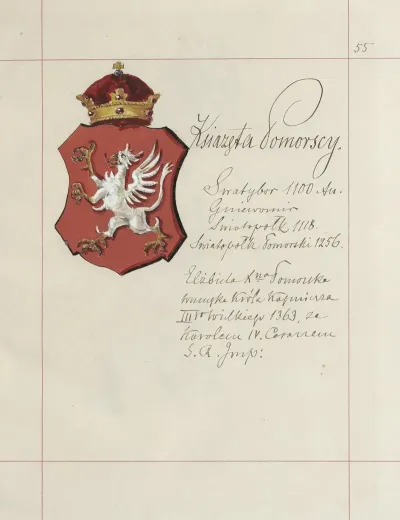 55
Książęta Pomorscy.
Swatybor 1100 An.
Gniewomir
Swiatopełk 1118.
Swiatopełk Pomorski 1256.
Elżbieta Xna Pomorska
wnuczka Króla Kaźmierza
III go Wielkiego 1363, za
Karolem IV. Cesarzem
S. R. Imp: